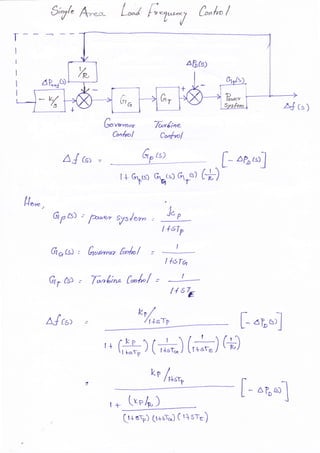 Single Area Load Frequency Control
ΔPD(s)
1/R
ΔPref(s)
Gp(s)
- K/s
GG
GT
Power System
Δf(s)
Governor Control
Turbine Control
Δf(s) = Gp(s) / 1 + Gp(s) GG(s) GT(s) (1/R) [- ΔPD(s)]
Here,
Gp(s) = power system = kp / 1+STp
GG(s) = Governor Control = 1 / 1+STG
GT(s) = Turbine Control = 1 / 1+STE
Δf(s) = kp/1+STp / 1 + (kp / 1+STp) (1 / 1+STG) (1 / 1+STE) (1/R) [- ΔPD(s)]
= kp/1+STp / 1 + (kp/R) / (1+STp) (1+STG) (1+STE) [- ΔPD(s)]